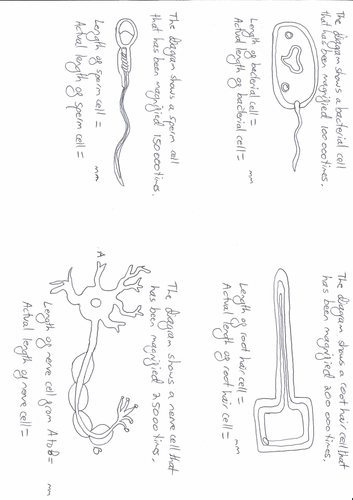 The diagram shows a bacterial cell
that has been magnified 100 000 times.
Length of bacterial cell = mm
Actual length of bacterial cell =
The diagram shows a root hair cell that
has been magnified 200 000 times.
Length of root hair cell = mm
Actual length of root hair cell =
The diagram shows a sperm cell
that has been magnified 150 000 times.
Length of sperm cell = mm
Actual length of sperm cell =
The diagram shows a nerve cell that
has been magnified 25000 times.
A
B
Length of nerve cell from A to B = mm
Actual length of nerve cell =